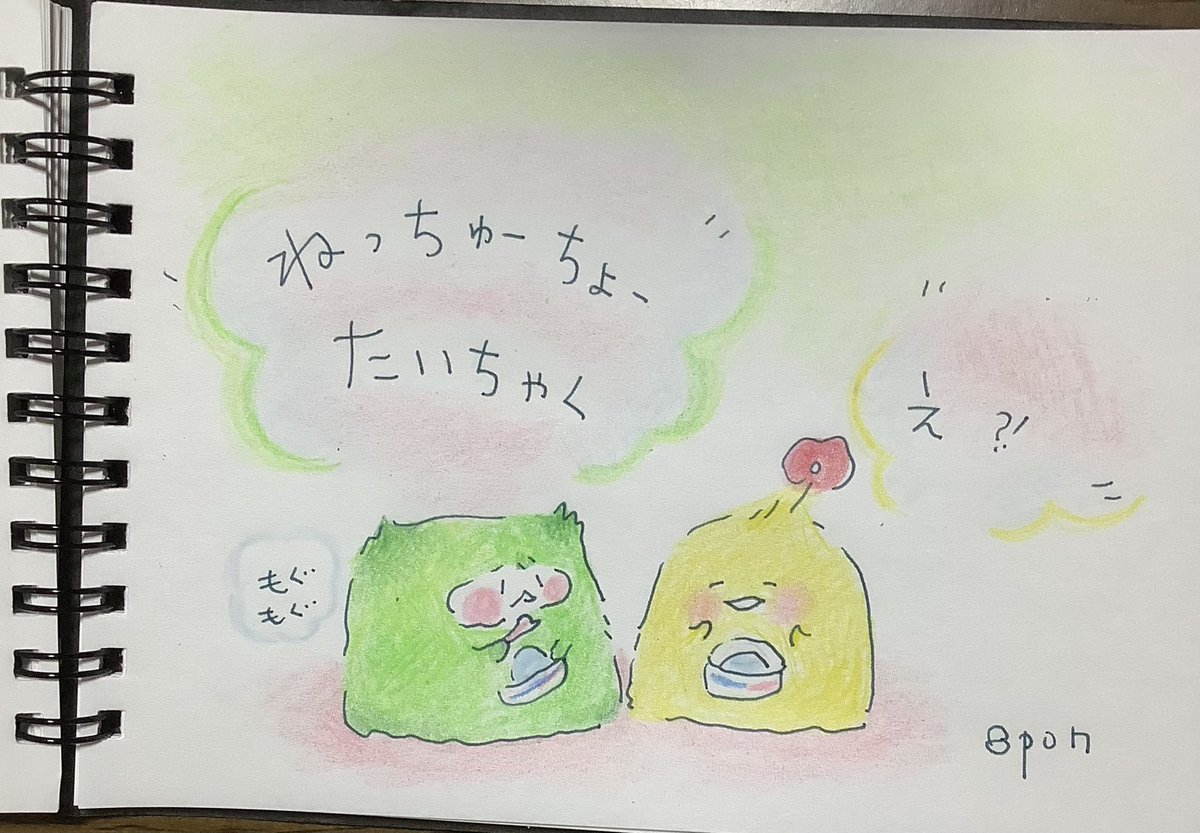 ねっちゅーちょー、
たいちゃく
え?!
もぐ
もぐ
8pon